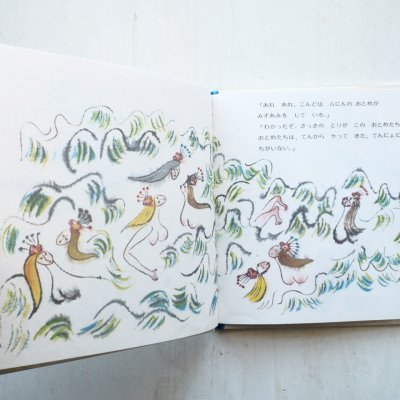 「あれ、あれ、こんどは 八にんの おとめが
みずあみを して いる。」
「わかったぞ。さっきの とりが この おとめたち
おとめたちは、てんから やって きた、てんにょに
ちがいない。」